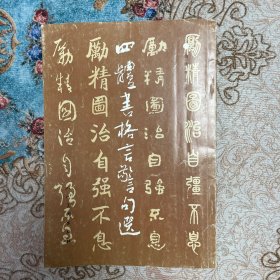 厲精圖治自彊不息
厲精圖治自強不息
四體書格言警句選
勵精圖治自强不息
励精图治自强不息